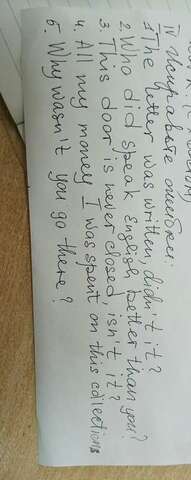 IV Исправьте ошибки:
1. The letter was written, didn't it?
2. Who did speak English better than you?
3. This door is never closed isn't it?
4. All my money I was spent on this collections
5. Why wasn't you go there?